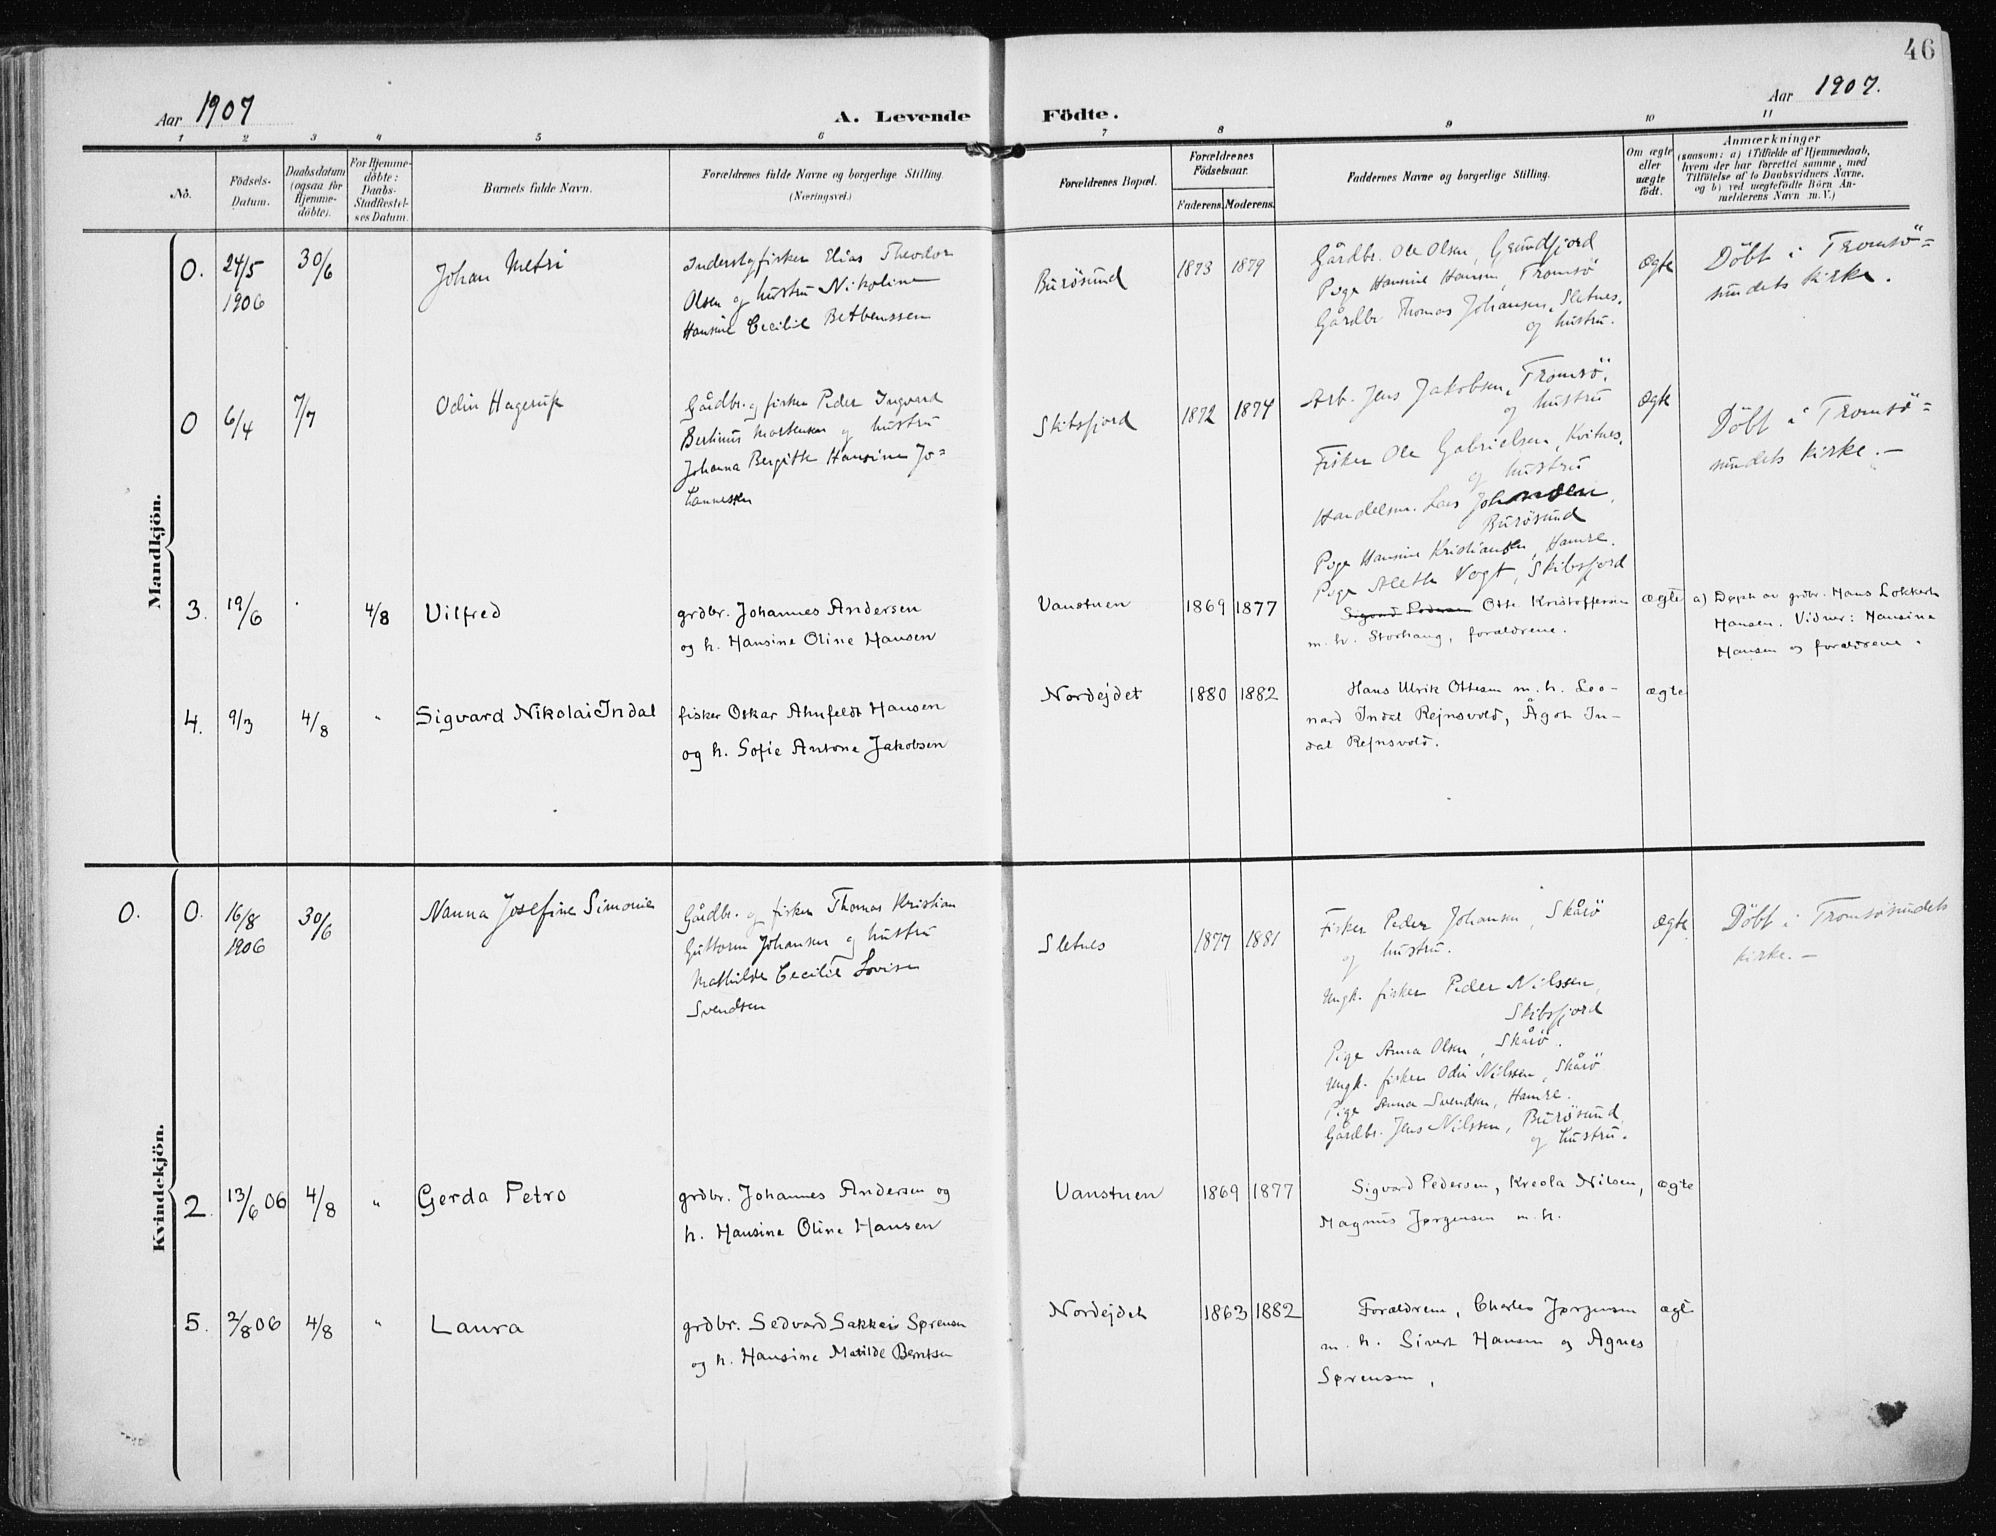 46
Aar 1907
A. Levende Födte.
Aar 1907.
1 2 3 4 5 6 7 8 9 10 11
No.
Födsels-
Datum.
Daabsdatum
(ogsaa for
Hjemme-
döbte).
For Hjemme-
döbte:
Daabs-
Stadfæstel-
ses Datum.
Barnets fulde Navn.
Forældrenes fulde Navne og borgerlige Stilling.
(Næringsvei.)
Forældrenes Bopæl.
Forældrenes
Födselsaar.
Faderens. Moderens.
Faddernes Navne og borgerlige Stilling.
Om ægte
eller
uægte
födt.
Anmærkninger
(saasom: a) i Tilfælde af Hjemmedaab,
hvem der har forrettet samme, med
Tilföielse af to Daabsvidners Navne,
og b) ved uægtefödte Börn An-
melderens Navn m. V.)
Mandkjön.
O.
24/5
1906
30/6
Johan
Elias Theodor
Olsen og hustru Nikoline
Hansine Cecilie
Burösund
1873 1879
Gårdbr. Ole Olsen, Grundfjord
Pige Hansine Hansen, Tromsö
Gårdbr. Thomas Johansen, Sletnes,
og hustru.
ægte
Döbt i Tromsö=
sundets kirke.
O
6/4
7/7
Odin Hagerup
Gårdbr. og fisker Peder Ingvard
Bertinus Mortensen og hustru
Johanna Bergitte Hansine Jo=
hannessen
Skibsfjord
1872 1874
Arb. Jens Jakobsen, Tromsö,
og hustru
Fisker Ole Gabrielsen, Kvitnes,
og hustru
Handelsm. Lars Johansen,
Burösund
Pige Hansine Kristiansen, Hamre.
Pige Alette Vogt, Skibsfjord
ægte
Döbt i Tromsö=
sundets kirke. —
3.
19/6
4/8
Vilfred
grdbr. Johannes Andersen
og h. Hansine Oline Hansen
Vanstuen
1869 1877
Sigvard Pedersen Otto Kristoffersen
m. h. Storhaug, forældrene.
ægte
a) Døpt av grdbr. Hans Lokkert
Hansen. Vidner: Hansine
Hansen og forældrene.
4.
9/3
4/8
"
Sigvard Nikolai Indal
fisker Oskar Ahnfeldt Hansen
og h. Sofie Antone Jakobsen
Nordejdet
1880 1882
Hans Ulrik Ottesen m. h. Leo-
nard Indal Rejnsvold, Ågot In-
dal Rejnsvold.
ægte
Kvindekjön.
O. O.
16/8
1906
30/6
Nanna Josefine Simonie
Gårdbr. og fisker Thomas Kristian
Guttorm Johansen og hustru
Mathilde Cecilie Lovise
Svendsen
Sletnes
1877 1881
Fisker Peder Johansen, Skårö
og hustru.
Ungk. fisker Peder Nilssen,
Skibsfjord
Pige Anna Olsen, Skårö.
Ungk. fisker Odin Nilssen, Skårö
Pige Anna Svendsen, Hamre.
Gårdbr. Jens Nilssen, Burösund,
og hustru.
ægte
Döbt i Tromsösundets
kirke. —
2.
13/6 06
4/8
"
Gerda Petra
grdbr. Johannes Andersen og
h. Hansine Oline Hansen
Vanstuen
1869 1877
Sigvard Pedersen, Kreola Nilsen,
Magnus Jørgensen m. h.
ægte
5.
2/8 06
4/8
"
Laura
grdbr. Sedvard Sørensen
og h. Hansine Matilde Bentsen
Nordejdet
1863 1882
Forældrene, Charles Jørgensen
m. h. Sivert Hansen og Agnes
Sørensen,
ægte